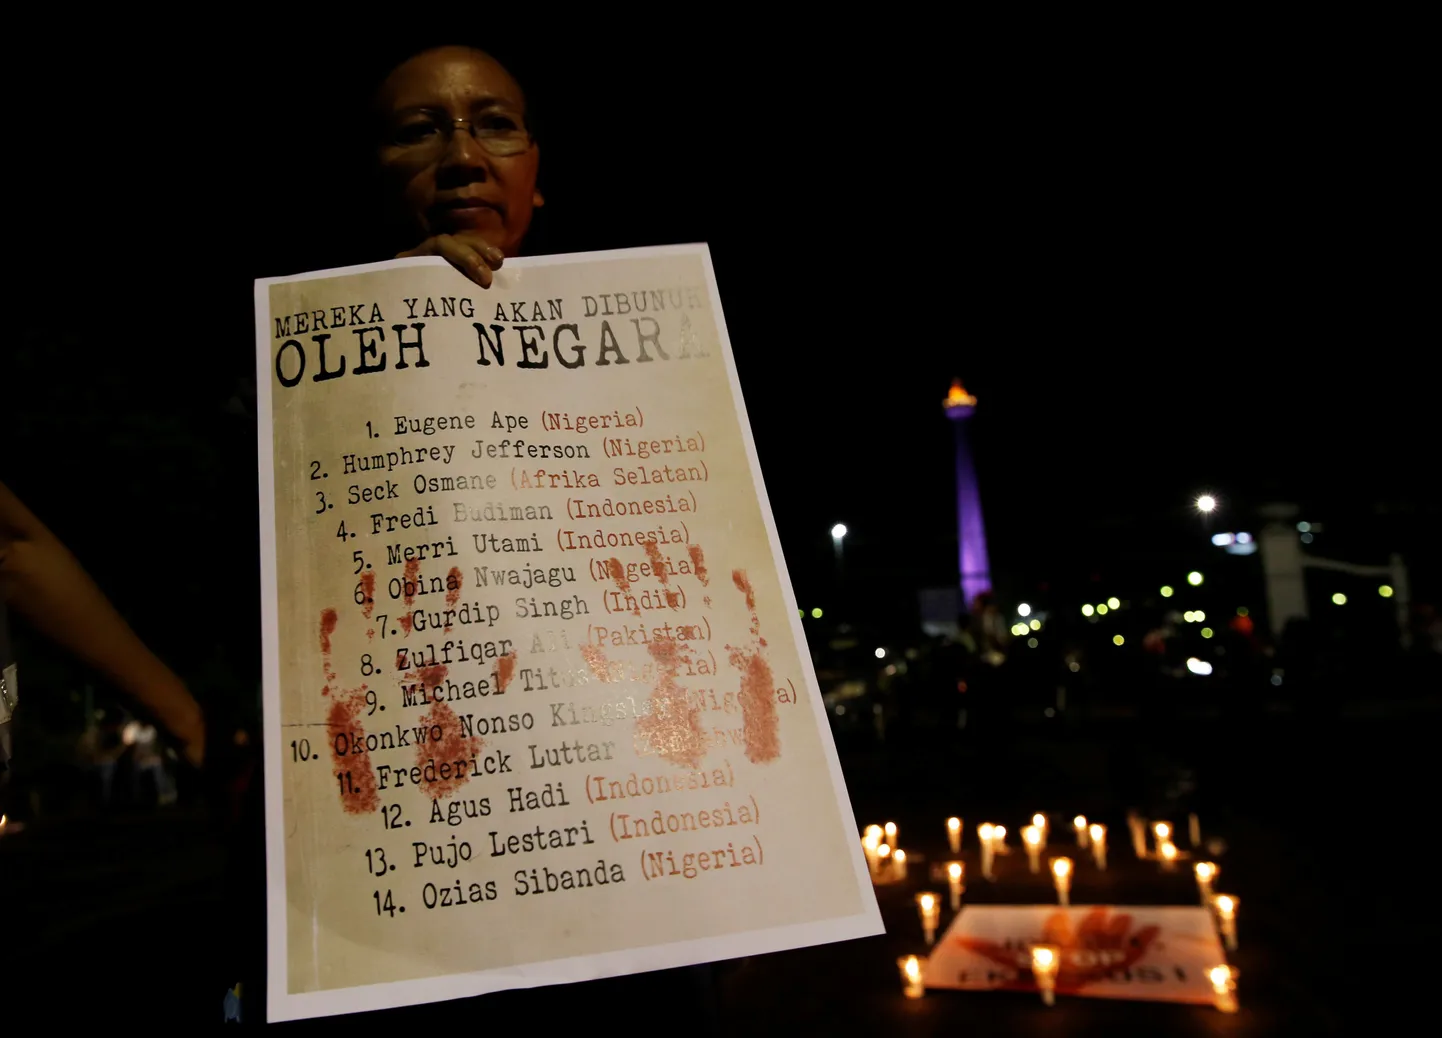 MEREKA YANG AKAN DIBUNUH
OLEH NEGARA
1. Eugene Ape (Nigeria)
2. Humphrey Jefferson (Nigeria)
3. Seck Osmane (Afrika Selatan)
4. Fredi Budiman (Indonesia)
5. Merri Utami (Indonesia)
6. Obina Nwajagu (Nigeria)
7. Gurdip Singh (India)
8. Zulfiqar Ali (Pakistan)
9. Michael Titus (Nigeria)
10. Okonkwo Nonso Kingsley (Nigeria)
11. Frederick Luttar
12. Agus Hadi (Indonesia)
13. Pujo Lestari (Indonesia)
14. Ozias Sibanda (Nigeria)
STOP
EKSEKUSI